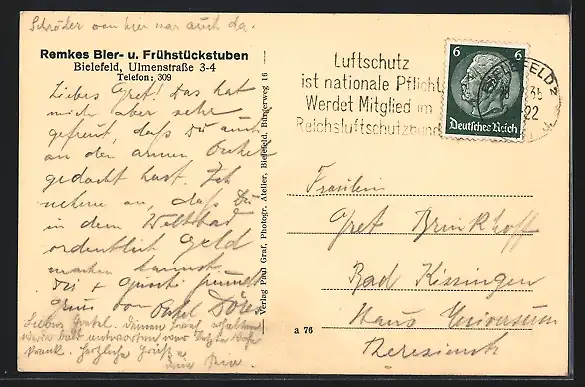 Schröder von hier war auch da.
Remkes Bier- u. Frühstückstuben
Bielefeld, Ulmenstraße 3-4
Telefon: 309
Liebes Gret! Das hat
mich aber sehr
gefreut, daß Du auch
an den armen Onkel
gedacht hast. Ich
nehme an, daß Du
in dem Weltbad
ordentlich Geld
machen kannst.
Gruss von Onkel
Liebes Gretel. Deinen Brief erhalten
werde bald antworten war
krank. Herzliche Grüße
Verlag Paul Graf, Photogr. Atelier, Bielefeld, Bürgerweg 16
Luftschutz
ist nationale Pflicht
Werdet Mitglied im
Reichsluftschutzbund
6 6
Deutsches Reich
Fräulein
Gret Brinkhoff
Bad Kissingen
Haus Universum
Theresienstr
a 76